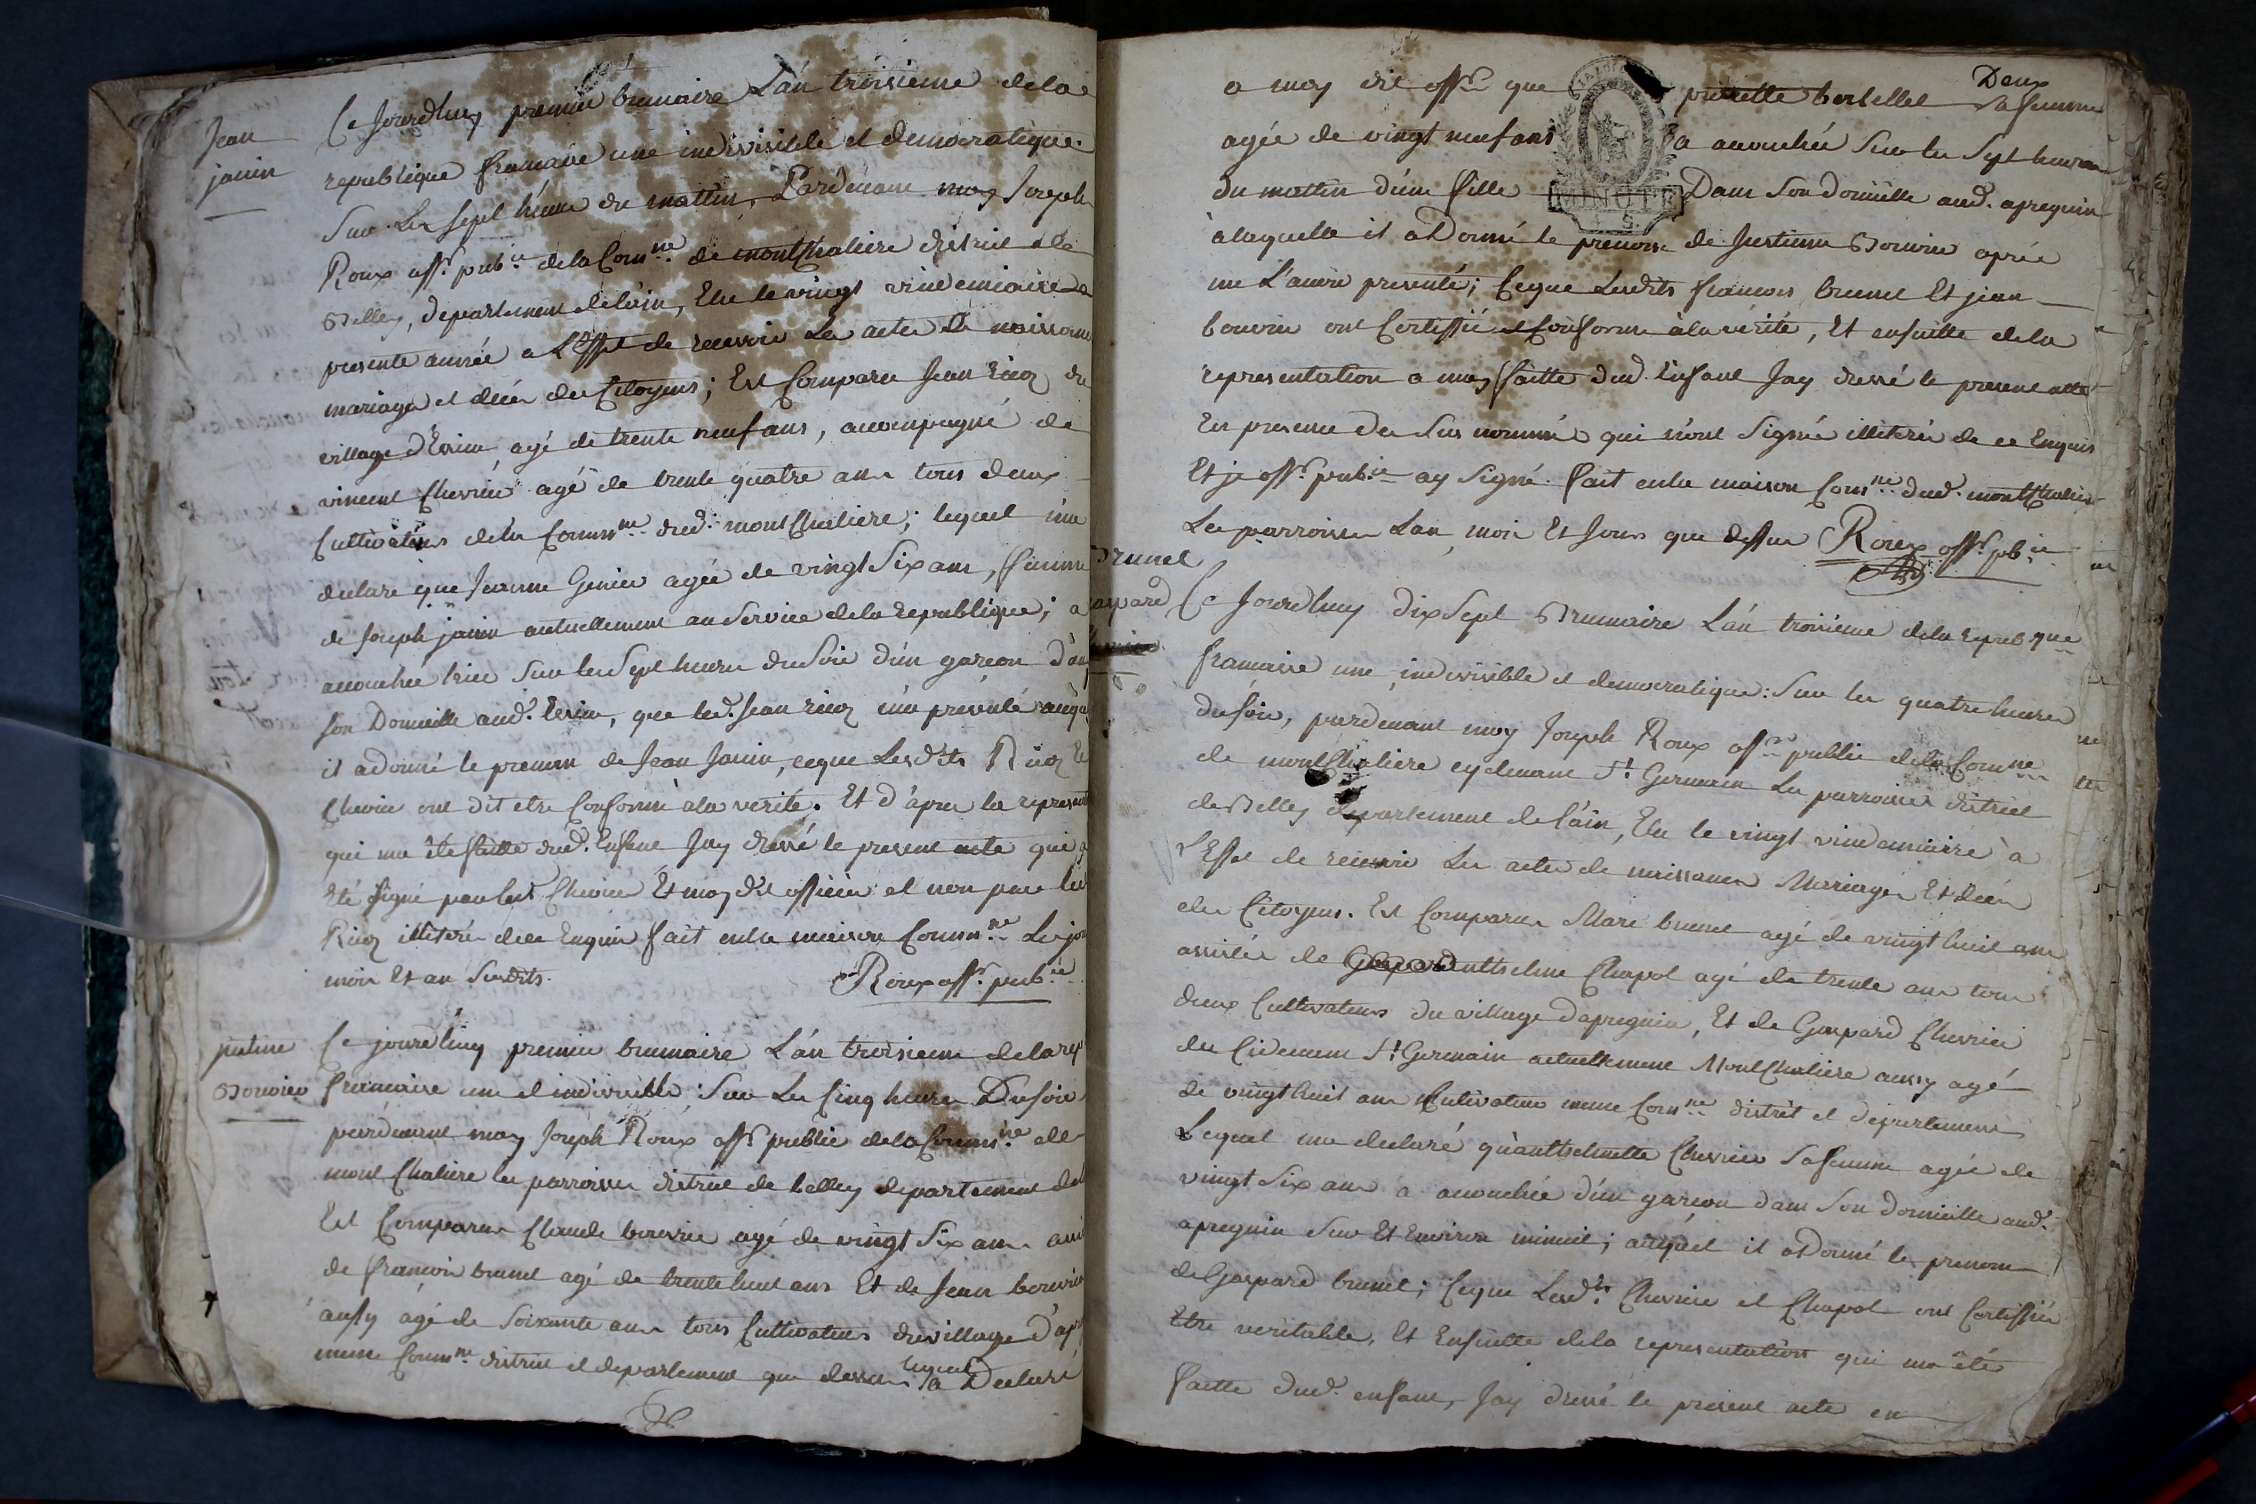 Jean
janin
Ce Jourdhuy premier brumaire L'an troisieme de la
republique francaise une indivisible et democratique.
Sur Les sept heures du mattin, Pardevant moy Joseph
Roux offr. pub.ic de la Comm.ne de montChaliere district de
Belley, departement de l'ain, Elu le vingt vindemiaire
presente année a L'Effet de recevoir Les actes de naissance
mariages et décès des Citoyens; Est Comparu Jean
village d'Evieu agé de trente neuf ans, accompagné de
vincent Chevrier agé de trente quatre ans tous deux
Cultivateurs de la Comm.ne dud. montChaliere; lequel m'a
declaré que Jeanne Genier agée de vingt Six ans, femme
de Joseph janin actuellement au Service de la Republique; a
accouchée hier Sur les Sept heures du Soir d'un garcon dans
son Domicille aud. Evieu, que led. Jean m'a présenté auquel
il a donné le prenom de Jean Janin, ceque Lesdits
Chevrier ont dit etre Conforme à la verité. Et d'apres la represent
qui ma été faitte dud. Enfant Jay dressé le present acte qui a
Eté signé par led. Chevrier Et moy dit officier et non par led
illiteré de ce Enquis fait en la maison Comm.ne Les jour
mois Et an Susdits. Roux offr. pub.ic
justine
Bouvier
Ce jourdhuy premier brumaire L'an troisieme de la rep
francaise une et indivisible: Sur Les Cinq heures Du soir
pardevant moy Joseph Roux offr. public de la Comm.ne de
mont Chaliere les parroisses district de belley departement de
Est Comparu Claude bouvier agé de vingt Six ans
de francois brunet agé de trente huit ans Et de Jean bouvier
aussy âgé de Soixante ans tous Cultivateurs du village d'apr
meme Comm.ne district et departement que dessus lequel a Declaré
Deux
a moy dit offr. que pierrette bertellet Sa femme
agée de vingt neuf ans a accouchée Sur les Sept heures
du mattin d'une fille Dans Son domicille aud. apreguin
MINUTE
à laquelle il a Donné le prenom de Justinne Bouvier aprés
me L'avoir presenté; Ceque Lesdits francois brunet Et jean
bouvier ont Certiffié Conforme à la vérité, Et ensuitte de la
representation a moy faitte dud. Enfant Jay dressé le present acte
En presence des Sus nommés qui n'ont Signé illiterés de ce Enquis
Et je offr. pub.ic ay Signé. fait en la maison Comm.ne dud. montChaliere
Les parroisses Lan, mois Et Jours que dessus Roux offr. pb.ic
Brunet
Gaspard
Ce Jourdhuy dix Sept Brumaire L'an troisieme de la Repubque
francaise une, indivisible et democratique: Sur les quatre heures
du soir, pardevant moy Joseph Roux offr. public de la Comm.ne
de montChaliere cydevant St. Germain Les parroisses district
de Belley departement de l'ain, Elu le vingt vindemiaire à
l'Effet de recevoir Les actes de naissances Mariages Et décès
des Citoyens. Est Comparu Marc brunet agé de vingt huit ans
assisté de antthelme Chapot agé de trente ans tous
deux Cultivateurs du village d'apreguin, Et de Gaspard Chevrier
du Cidevant St. Germain actuellement MontChaliere aussy agé
de vingt huit ans Cultivateur meme Comm.ne district et departement
Lequel ma declaré qu'antthelmette Chevrier Sa femme agée de
vingt Six ans a accouchée d'un garcon dans Son domicille aud.
apreguin Sur Et Environ minuit; auquel il a Donné le prenom
de Gaspard brunet; Ceque Lesd.ts Chevrier et Chapot ont Certiffié
Etre veritable, Et Ensuitte de la representation qui ma été
faitte dud. enfant, Jay dressé le present acte en